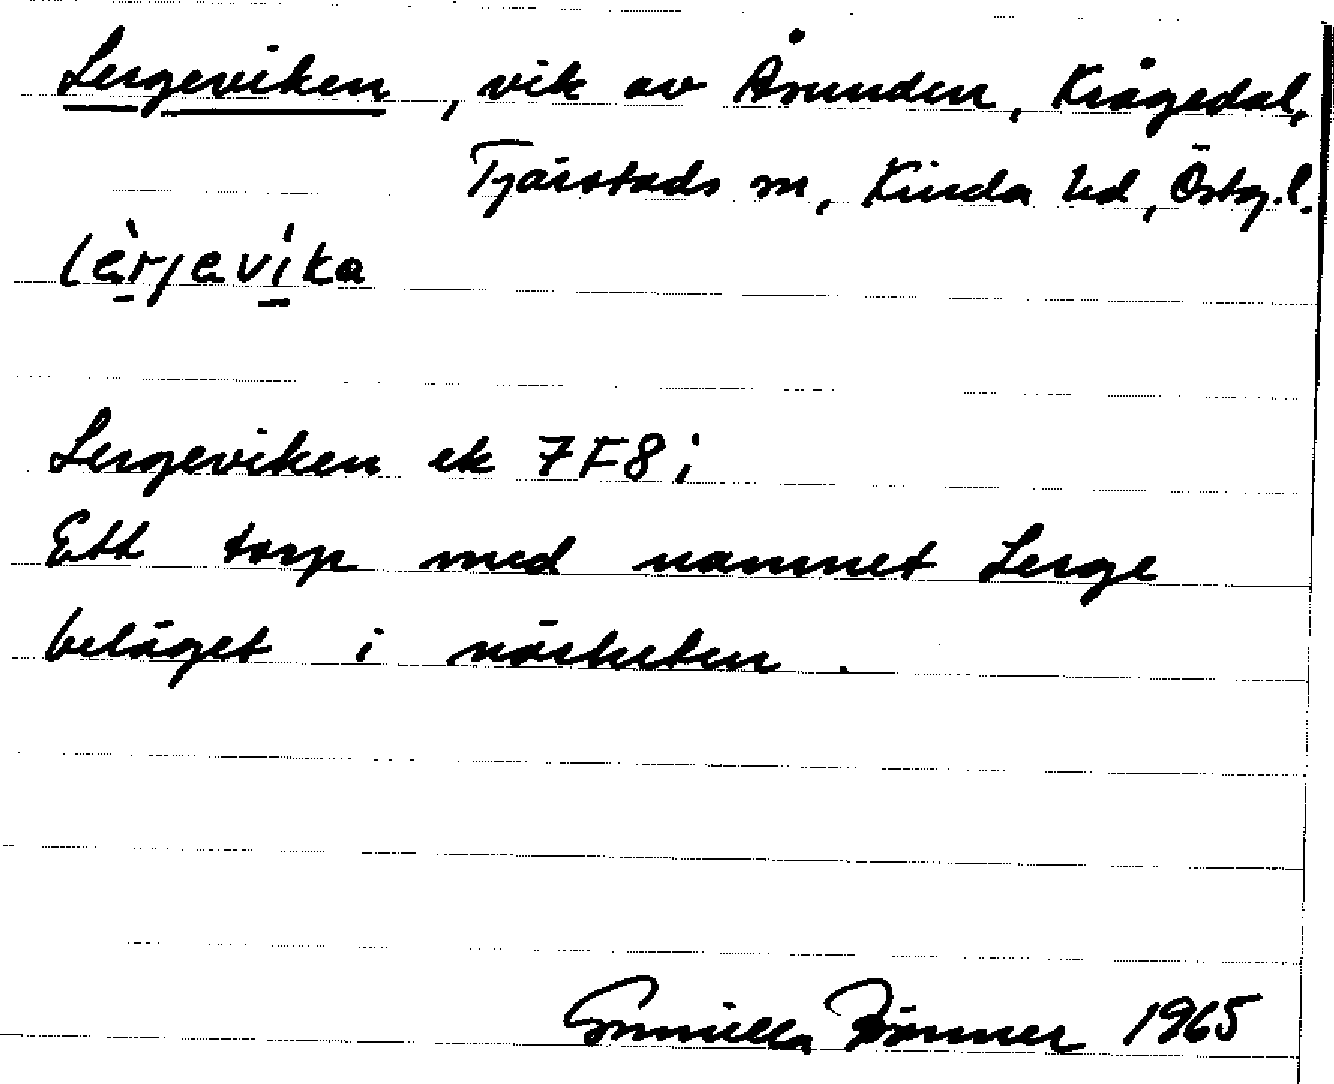 Lergeviken, vik av Åsunden, Krågedal,
Tjärstads sn, Kinda hd, Östg.l.
lèrjevíka
Lergeviken ek 7F8i
Ett torp med namnet Lerge
beläget i närheten.
Gunilla 1965